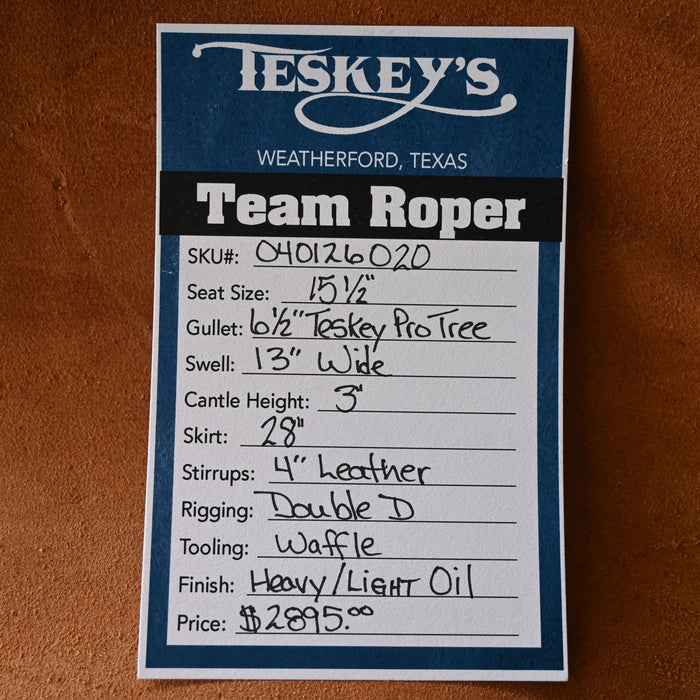 TESKEY'S
WEATHERFORD, TEXAS
Team Roper
SKU#: 040126020
Seat Size: 15 1/2"
Gullet: 6 1/2" Teskey Pro Tree
Swell: 13" Wide
Cantle Height: 3"
Skirt: 28"
Stirrups: 4" Leather
Rigging: Double D
Tooling: Waffle
Finish: Heavy/LIGHT Oil
Price: $2895.00